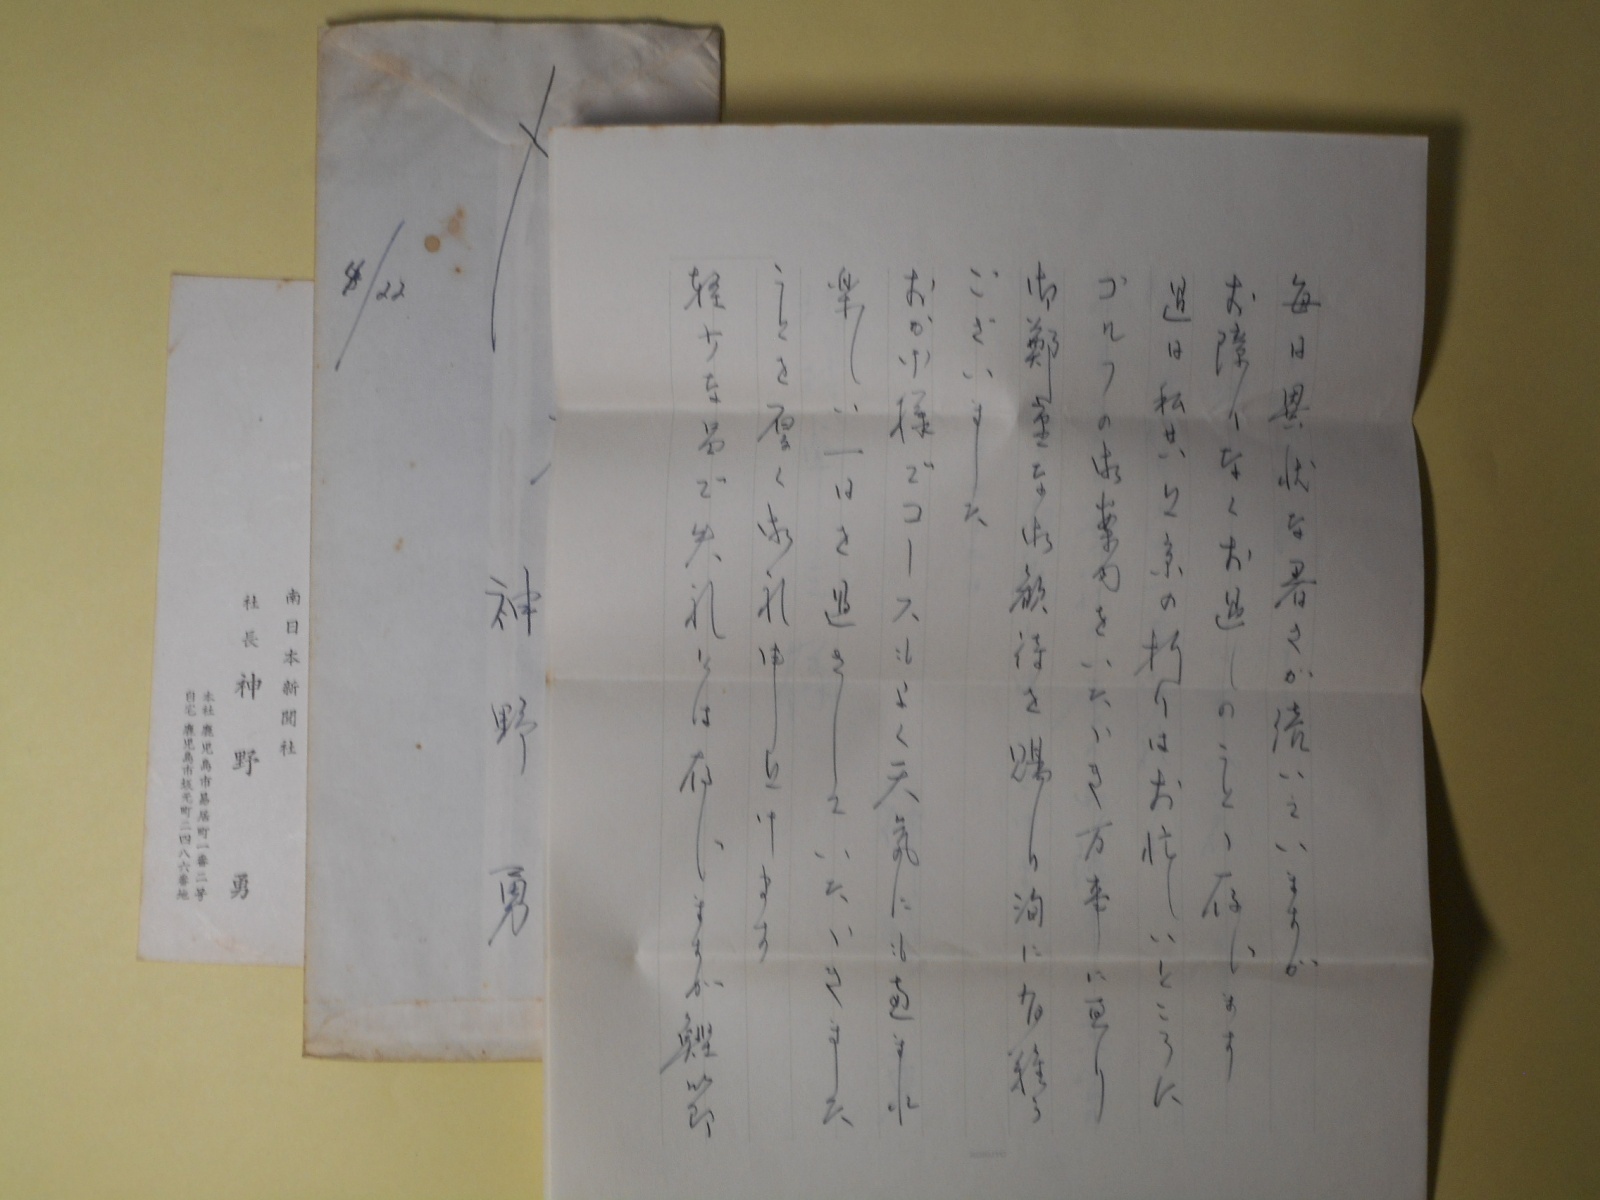 毎日異状な暑さが続いていますが
お障りなくお過しのことゝ存じます
過日は私共上京の折りはお忙しいところに
ゴルフの御案内をいたゞき万事に亘り
御鄭重な御歓待を賜り洵に有難う
ございました
おかげ様でコースもよく天気にも恵まれ
楽しい一日を過させていたゞきました
ことを厚く御礼申し上げます
軽少な品で失礼とは存じますが鰹節
神野勇
8/22
南日本新聞社
社長 神野勇
本社 鹿児島市易居町一番二号
自宅 鹿児島市坂元町二四八六番地